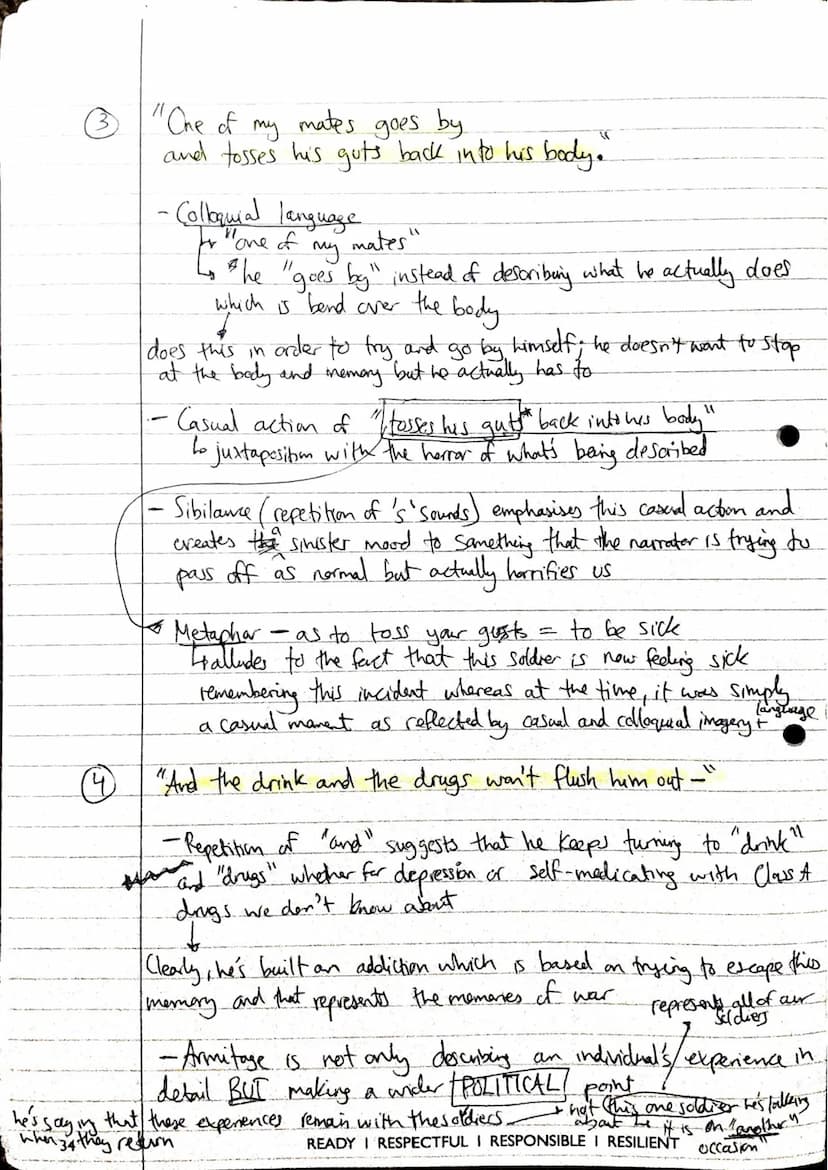 ③ "One of my mates goes by
and tosses his guts back into his body."
- Colloquial language
↳ "one of my mates"
↳ *he "goes by" instead of describing what he actually does
which is bend over the body
does this in order to try and go by himself; he doesn't want to stop
at the body and memory but he actually has to
- Casual action of "tosses his guts* back into his body"
↳ juxtaposition with the horror of what's being described
- Sibilance (repetition of 's' sounds) emphasises this casual action and
creates a sinister mood to something that the narrator is trying to
pass off as normal but actually horrifies us
Metaphor - as to toss your guts = to be sick
↳ alludes to the fact that this soldier is now feeling sick
remembering this incident whereas at the time, it was simply
a casual moment as reflected by casual and colloquial imagery + language
④ "And the drink and the drugs won't flush him out -"
- Repetition of "and" suggests that he keeps turning to "drink"
and "drugs" whether for depression or self-medicating with Class A
drugs we don't know about
Clearly, he's built an addiction which is based on trying to escape this
memory and that represents the memories of war
represents all of our
soldiers
- Armitage is not only describing an individual's experience in
detail BUT making a wider POLITICAL point
he's saying that these experiences remain with the soldiers → not this one soldier he's talking
when they return
about he it is on "another"
occasion"
34
READY | RESPECTFUL | RESPONSIBLE | RESILIENT